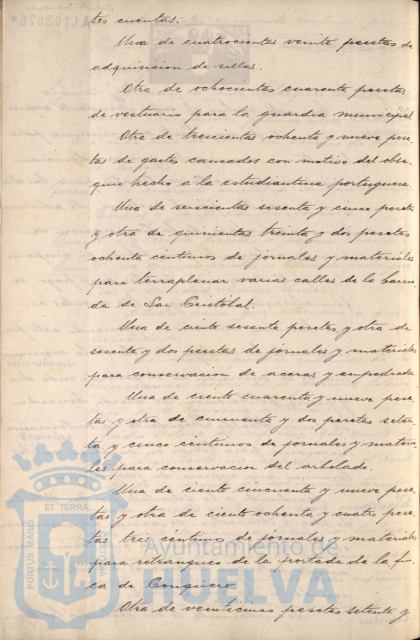 tes cuentas:
Una de cuatrocientas veinte pesetas de
adquisicion de sillas.
Otra de ochocientas cuarenta pesetas
de vestuario para la guardia municipal
Otra de trescientas ochenta y nueve pese
tas de gastos causados con motivo del obse
quio hecho á la estudiantina portuguesa.
Una de seiscientas sesenta y cinco peseta
y otra de quinientas treinta y dos pesetas
ochenta centimos de jornales y materiales
para terraplenar varias calles de la barria
da de San Cristóbal.
Una de ciento sesenta pesetas, y otra de
sesenta y dos pesetas de jornales y materiales
para conservacion de aceras y empedrados
Una de ciento cuarenta y nueve pese
tas y otra de cincuenta y dos pesetas seten
ta y cinco centimos de jornales y materia
les para conservacion del arbolado.
Una de ciento cincuenta y nueve pese
tas y otra de ciento ochenta y cuatro pese
tas tres céntimos de jornales y materiales
para retranqueo de la portada de la fin
ca de Conquero.
Otra de veinticinco pesetas setenta y
PORTUS MARIS
ET TERRÆ
Ayuntamiento de
HUELVA